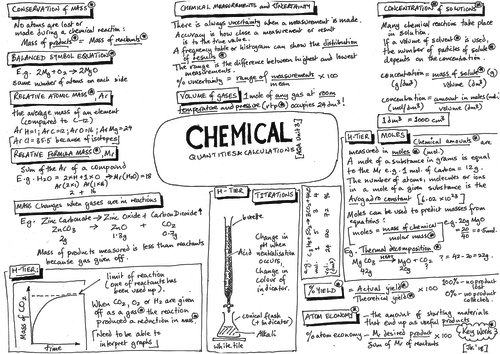 CONSERVATION of MASS
No atoms are lost or
made during a chemical reaction:
Mass of products = Mass of reactants
BALANCED SYMBOL EQUATIONS
E.g. 2Mg + O2 → 2MgO
Same number of atoms on each side
RELATIVE ATOMIC MASS, Ar
the average mass of an element
(compared to C-12)
Ar H=1; Ar C=12; Ar O=16; Ar Mg=24
Ar Cl=35.5 because of isotopes
RELATIVE FORMULA MASS, Mr
Sum of the Ar of a compound
E.g. H2O = 2xH + 1xO → Mr(H2O)=18
Ar(2x1) Ar(1x16)
2 + 16
MASS Changes when gases are in reactions
E.g. Zinc Carbonate → Zinc Oxide + Carbon Dioxide↑
ZnCO3 → ZnO + CO2
2g 1.3g 0.7g
Mass of products measured is less than reactants
because gas given off.
H-TIER:
Mass of CO2
time
limit of reaction
(one of reactants has
been used up).
When CO2, O2 or H2 are given
off as a gas the reaction
produced a reduction in mass
[Need to be able to
interpret graphs]
CHEMICAL MEASUREMENTS and UNCERTAINTY
There is always uncertainty when a measurement is made.
Accuracy is how close a measurement or result
is to the true value.
A frequency table or histogram can show the distribution
of results
The range is the difference between highest and lowest
measurements.
% uncertainty = range of measurements x 100
mean
VOLUME of GASES 1 mole of any gas at room
temperature and pressure (rtp) occupies 24 dm3!
CHEMICAL
QUANTITIES & CALCULATIONS
[AQA Unit 3]
H-TIER TITRATIONS
burette
Acid
Change in
pH when
neutralisation
occurs.
Change in
colour of
indicator.
conical flask
(+ indicator)
Alkali
white tile
%YIELD = Actual yield x 100
Theoretical yield
100% = no product
lost
0% = no product
collected
ATOM ECONOMY - the amount of starting materials
that end up as useful products
% atom economy = Mr desired product x 100
Sum of Mr of reactants
Key Words
CONCENTRATION of SOLUTIONS
Many chemical reactions take
place in solution.
If a volume of solution is used,
the number of particles of solute
depends on the concentration.
concentration = mass of solute (g)
(g/dm3) volume (dm3)
concentration = amount in moles (mol)
(mol/dm3) volume (dm3)
1dm3 = 1000 cm3
H-TIER MOLES
Chemical amounts are
measured in moles (mol)
A mole of a substance in grams is equal
to the Mr e.g. 1 mol of Carbon = 12g.
The number of atoms, molecules or ions
in a mole of a given substance is the
Avogadro constant [6.02 x 10^23]
Moles can be used to predict masses from
equations:
moles = mass of chemical
molar mass
e.g. 20g MgO
= 20/40 = 0.5mol.
E.g. Thermal decomposition
MgCO3 heat→ MgO + CO2
42g 20g ?
? = 42-20 = 22g.